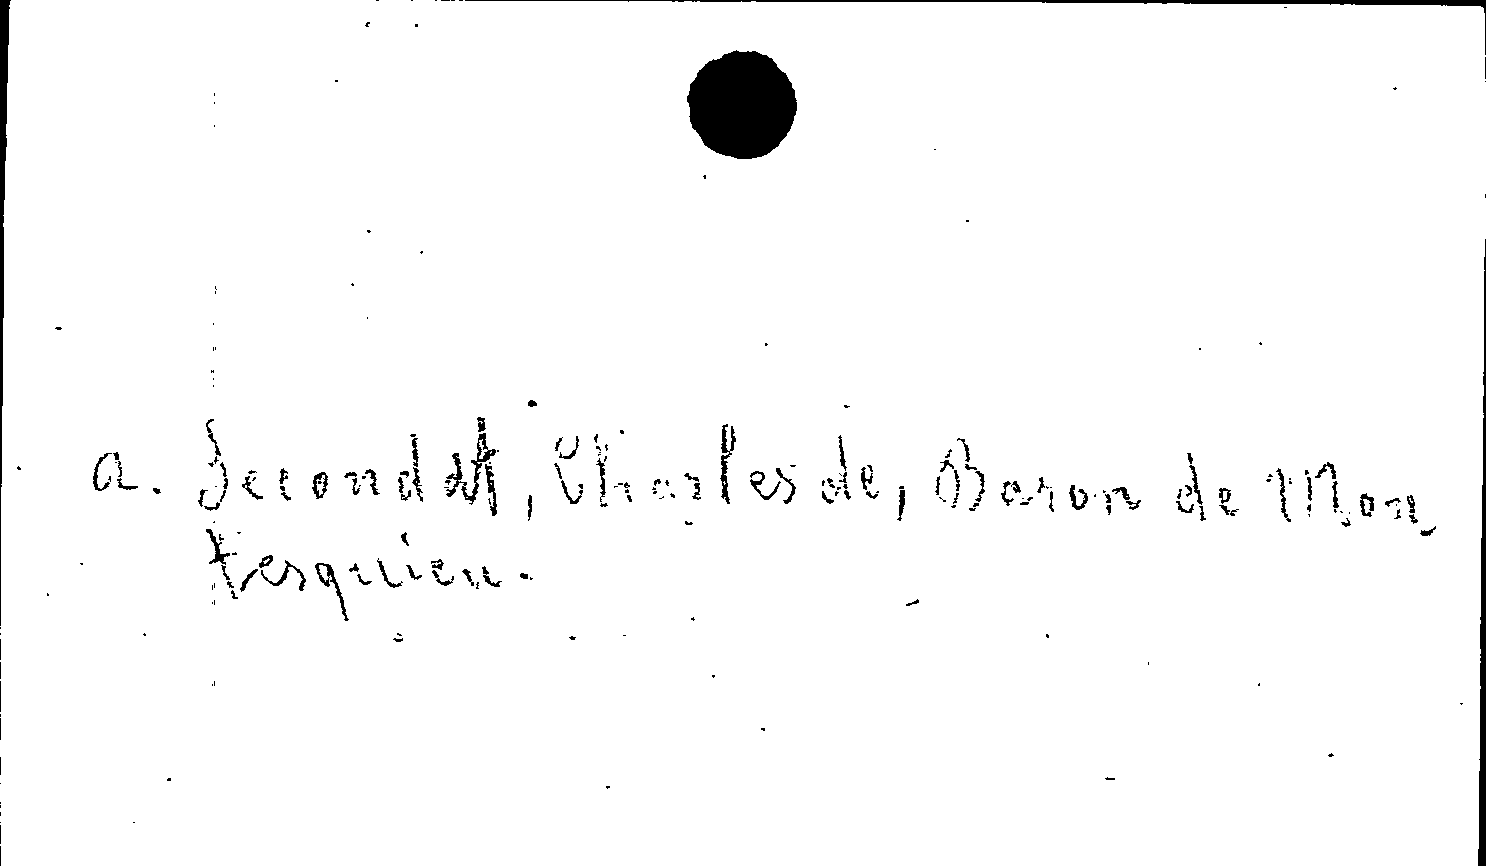 a. Secondat, Charles de, Baron de Mon
tesquieu.